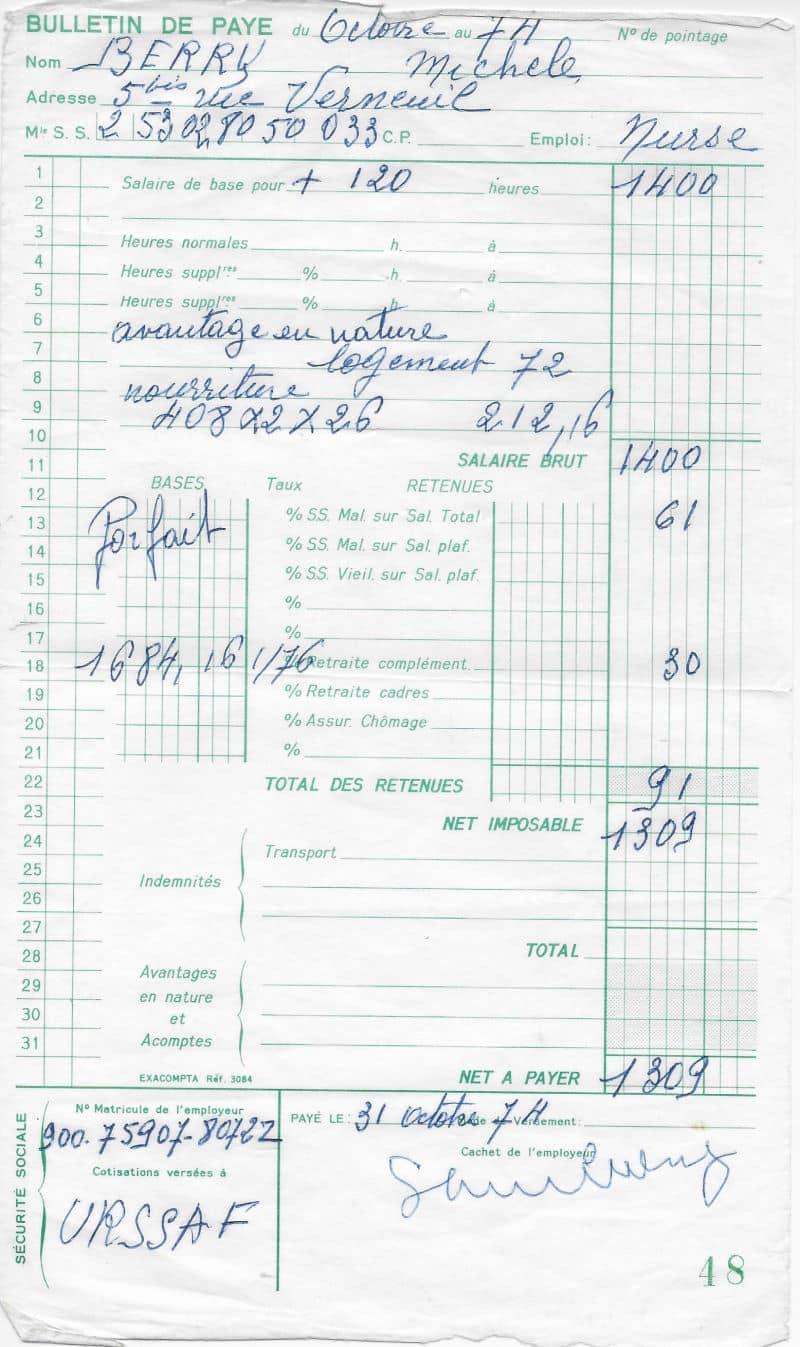 BULLETIN DE PAYE du Octobre au 74 N° de pointage
Nom BERRY Michele
Adresse 5 bis rue Verneuil
Mle S. S. 2 53 02 80 50 033 C.P. Emploi: Nurse
1 Salaire de base pour + 120 heures 1400
2
3 Heures normales h. à
4 Heures suppl.res % h. à
5 Heures suppl.res % h. à
6 avantage en nature
7 logement 72
8 nourriture
9 408 x 2 x 26 212,16
10
11 SALAIRE BRUT 1400
12 BASES Taux RETENUES
13 Forfait % SS. Mal. sur Sal. Total 61
14 % SS. Mal. sur Sal. plaf.
15 % SS. Vieil. sur Sal. plaf.
16 %
17 %
18 1684,16 1,76 % Retraite complément. 30
19 % Retraite cadres
20 % Assur. Chômage
21 %
22 TOTAL DES RETENUES 91
23 NET IMPOSABLE 1309
24 Transport
25 Indemnités
26
27
28 TOTAL
29 Avantages
30 en nature
et
31 Acomptes
EXACOMPTA Réf. 3084 NET A PAYER 1309
SÉCURITÉ SOCIALE
N° Matricule de l'employeur
900. 75907-8072Z
Cotisations versées à
URSSAF
PAYÉ LE: 31 octobre 74 Versement:
Cachet de l'employeur
48